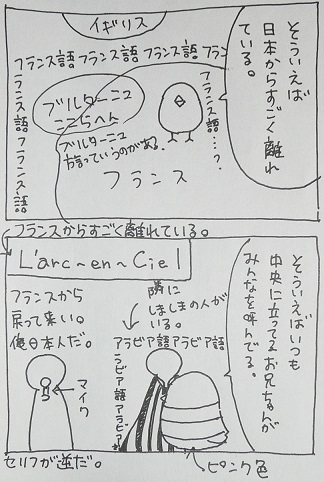 そういえば
日本からすごく離れ
ている。
イギリス
フランス語フランス語フランス語フラン
フランス語フランス語
フランス語…?
ブルターニュ
ここらへん
ブルターニュ
方言っていうのがある。
フランス
フランスからすごく離れている。
L'arc~en~Ciel
そういえばいつも
中央に立ってるお兄ちゃんが
みんなを呼んでる。
隣に
しましまの人が
いる。
アラビア語アラビア語
アラビア語アラビア
フランスから
戻って来い。
俺日本人だ。
マイク
セリフが逆だ。
ピンク色